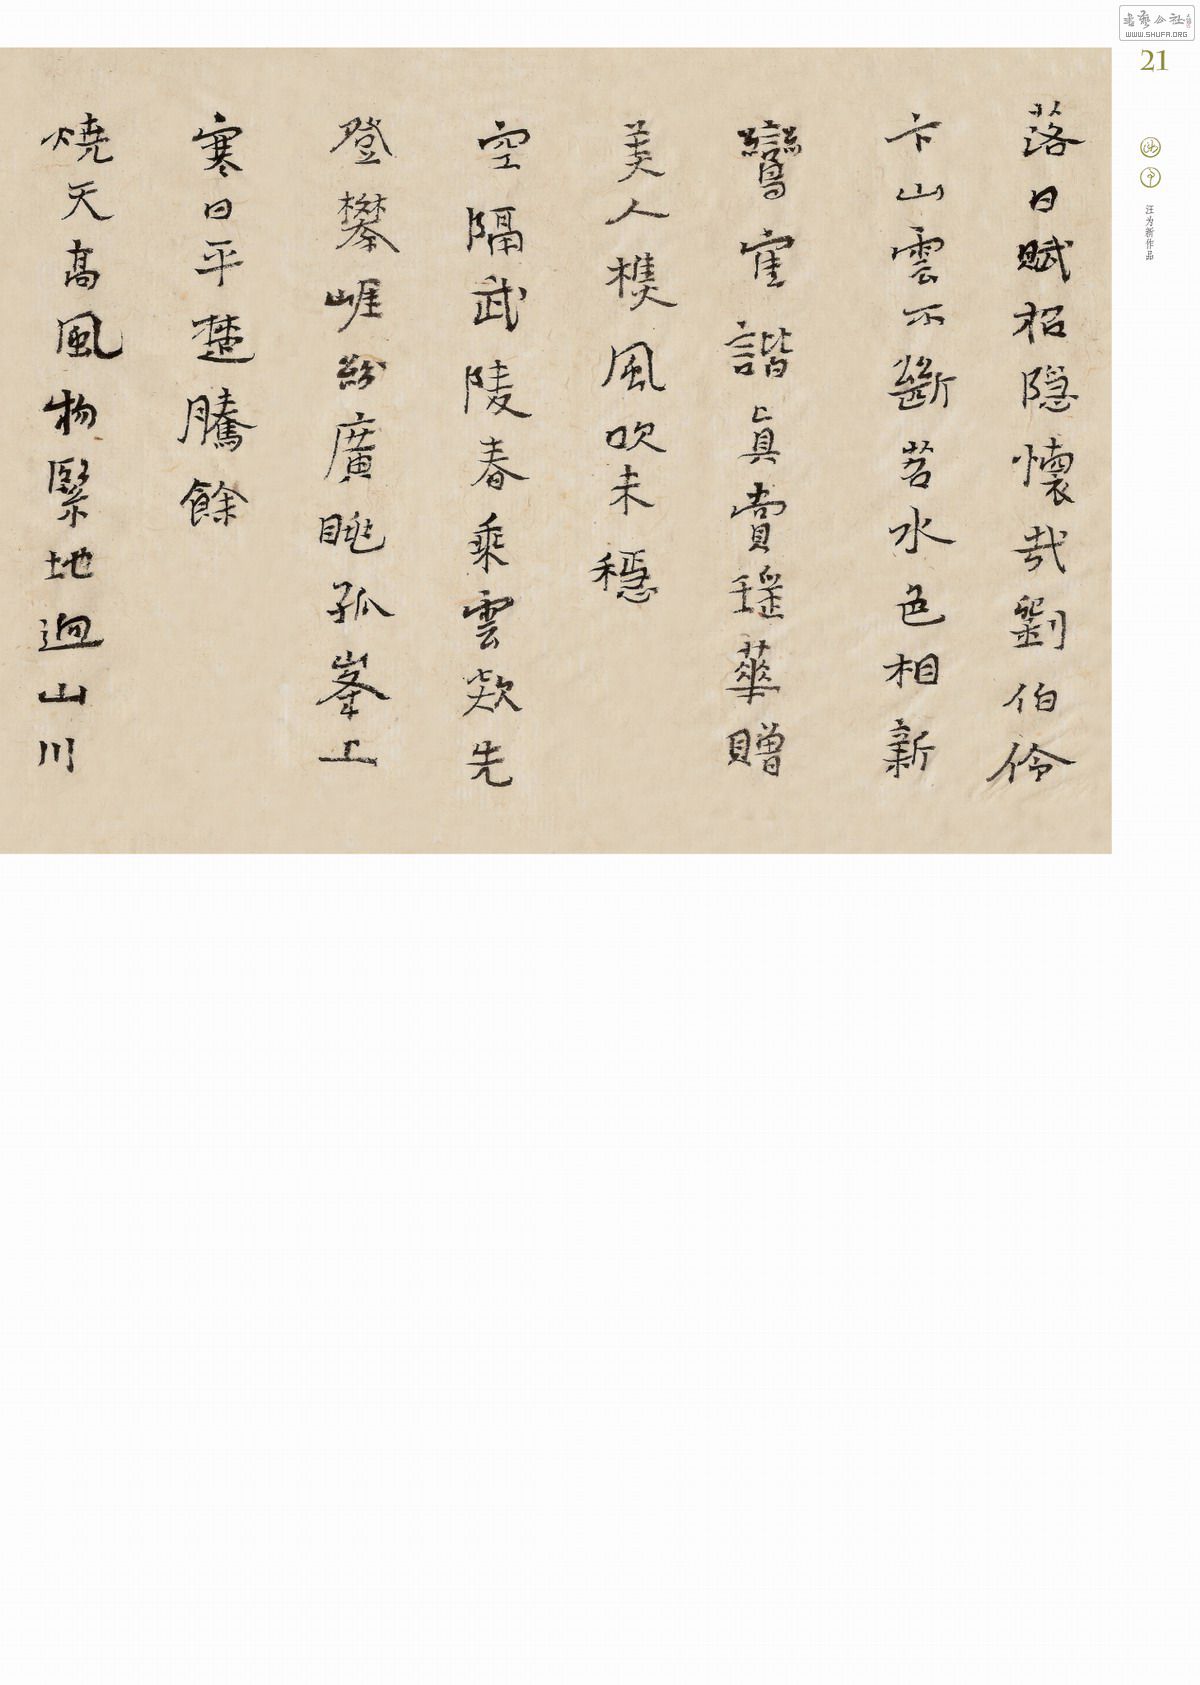 落日賦招隱懷哉劉伯伶
卞山雲不斷苕水色相新
鸞寉諧真賞瑤華贈
美人樵風吹未穩
空隔武陵春乘雲欻先
登攀崕紛廣眺孤峯上
寒日平楚騰餘
燒天高風物緊地迥山川
21
汪为新作品
书艺公社
WWW.SHUFA.ORG